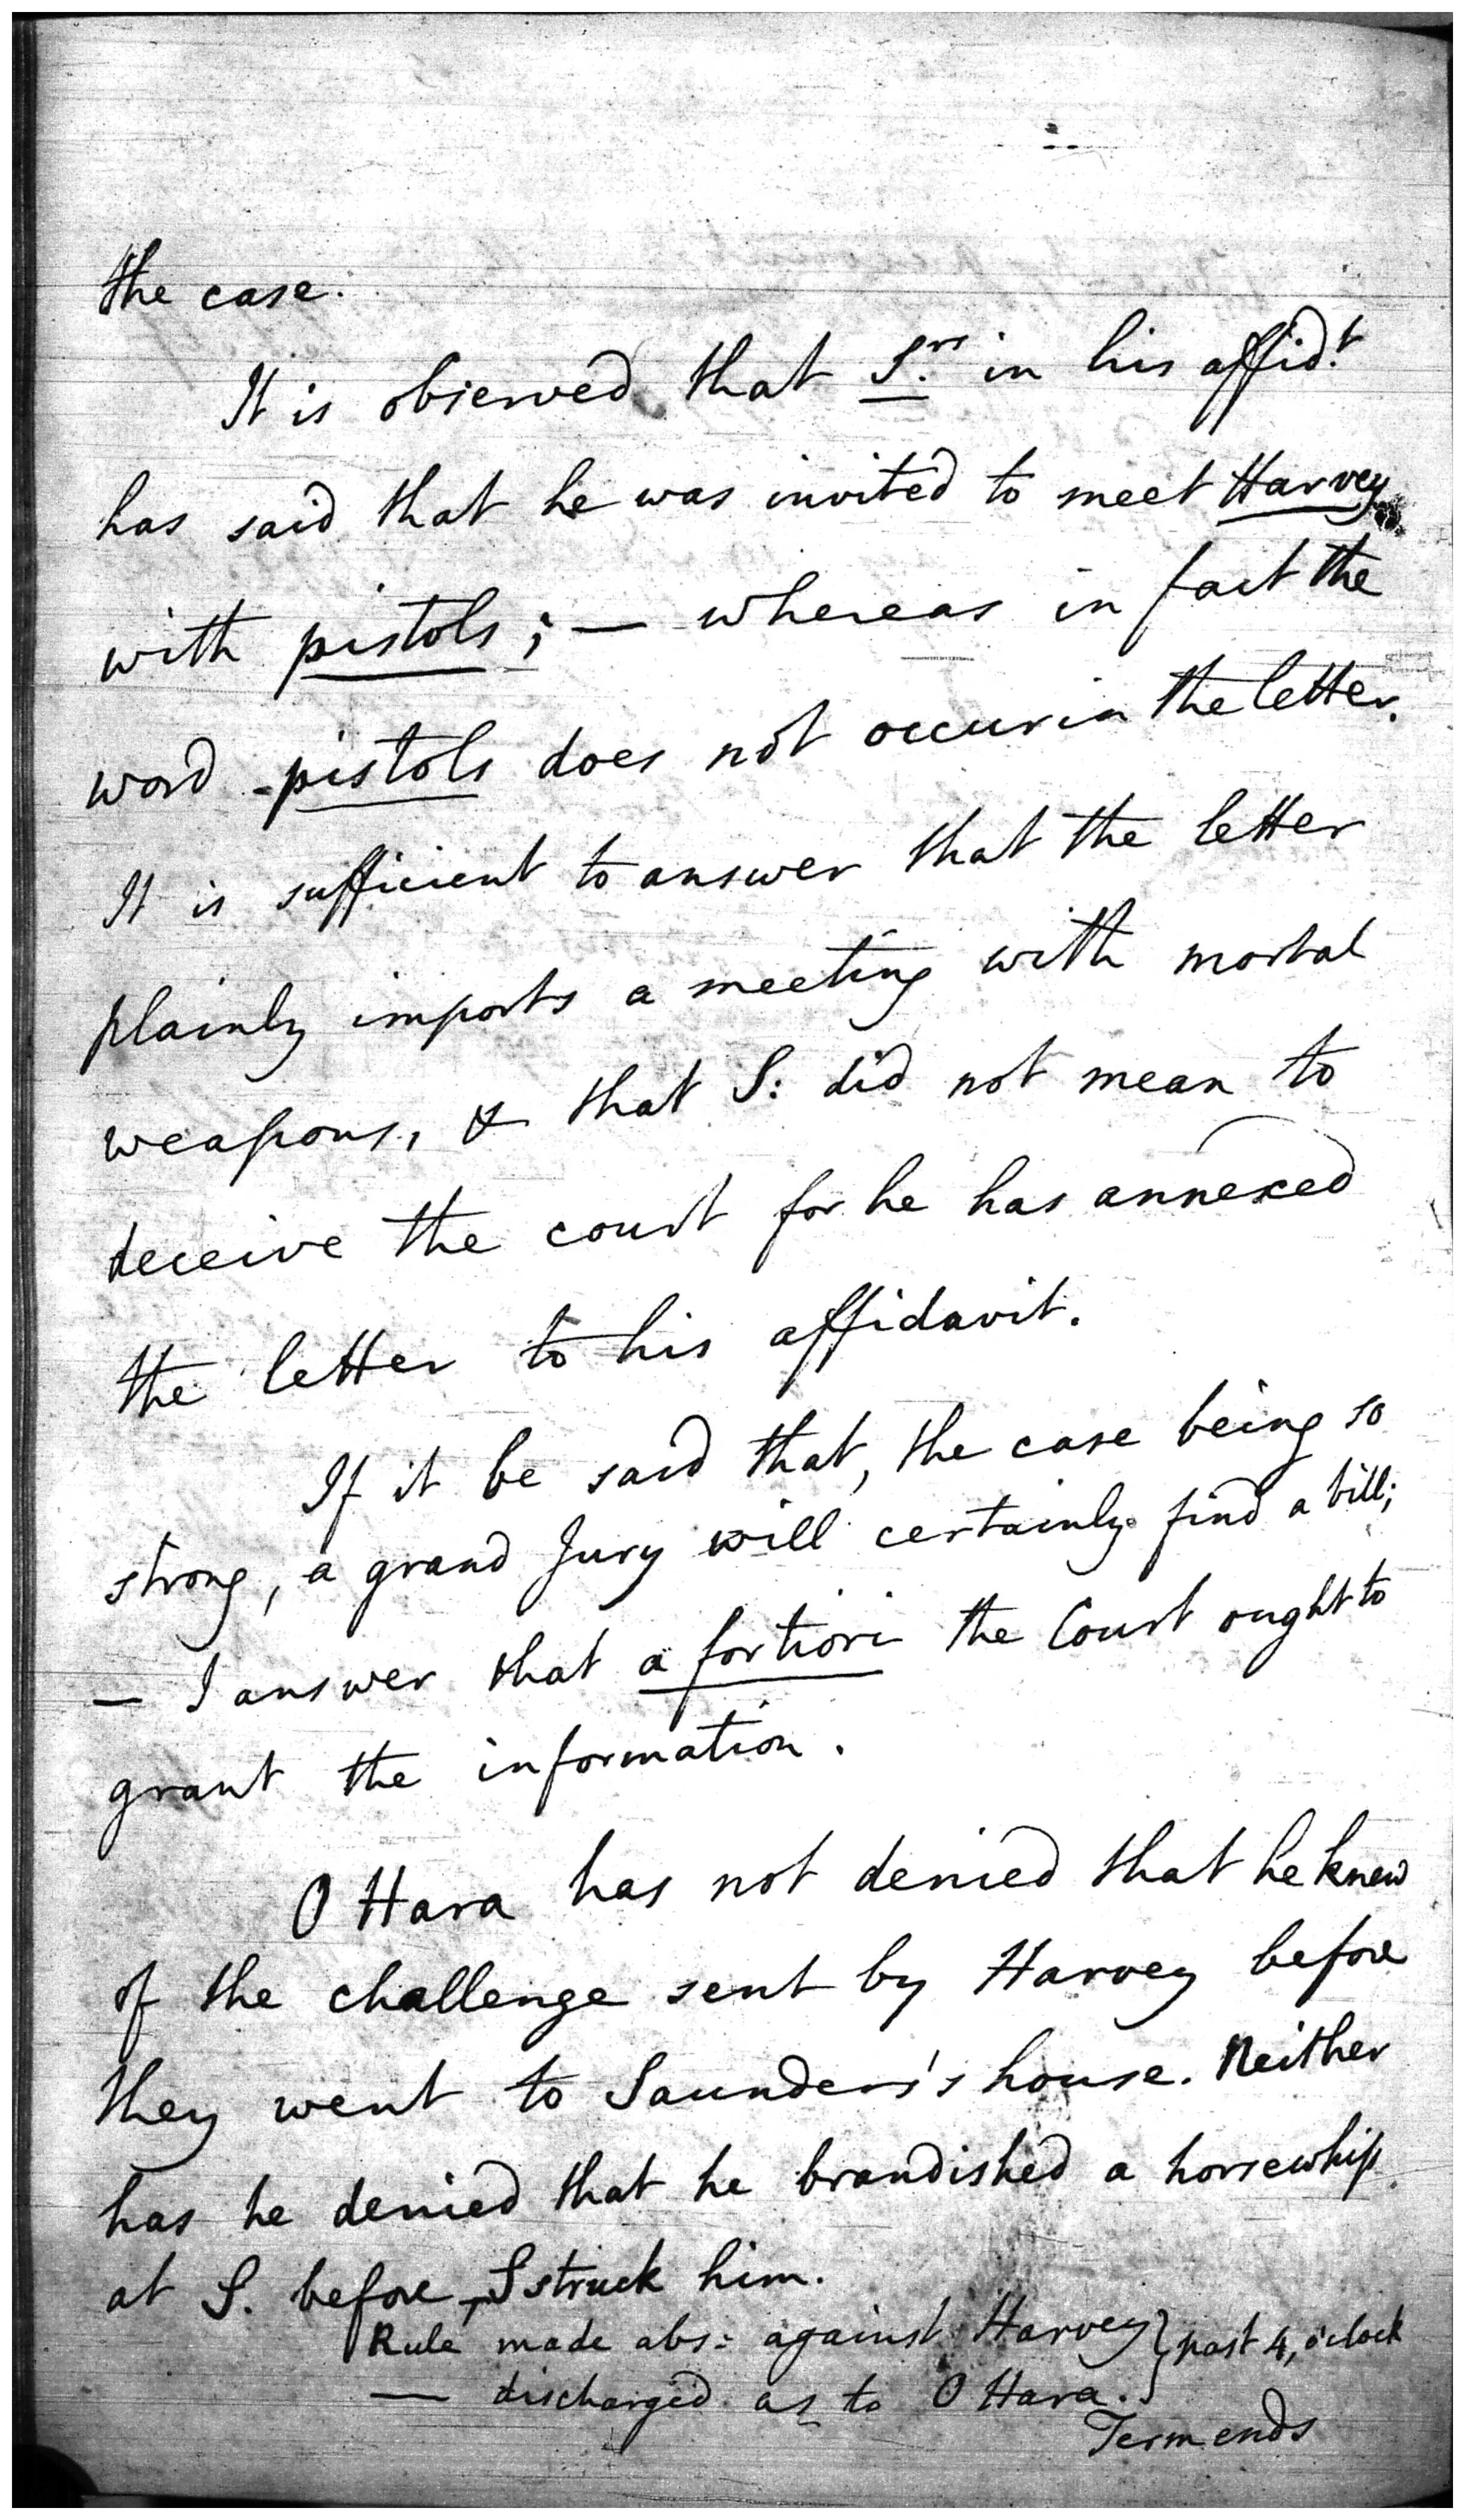 the case.
It is observed that S.rs in his affid.t
has said that he was invited to meet Harvey
with pistols; — whereas in fact the
word pistols does not occur in the letter.
It is sufficient to answer that the letter
plainly imports a meeting with mortal
weapons, & that S: did not mean to
deceive the court for he has annexed
the letter to his affidavit.
If it be said that, the case being so
strong, a grand Jury will certainly find a bill;
— I answer that a fortiori the Court ought to
grant the information.
O Hara has not denied that he knew
of the challenge sent by Harvey before
they went to Saunders's house. Neither
has he denied that he brandished a horsewhip
at S. before S struck him.
Rule made abs: against Harvey } past 4, o'clock
— discharged as to O Hara.
Term ends